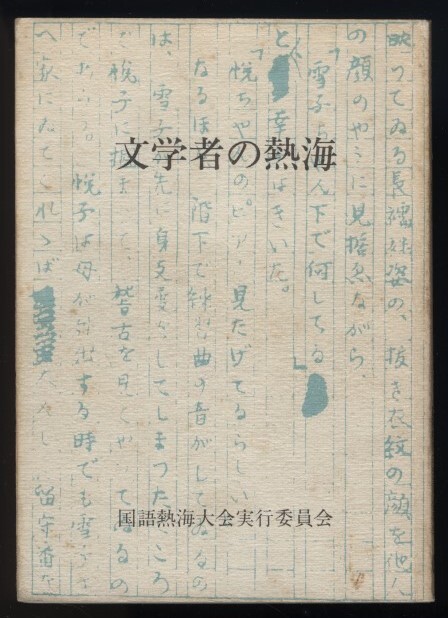 文学者の熱海
国語熱海大会実行委員会
映つてゐる長襦袢姿の、抜き衣紋の顔を他人
の顔のやうに見据ゑながら、
「雪子ちやん下で何してる」
と幸子はきいた。
「悦ちやんのピアノ見たげてるらしい」
なるほど、階下で練習曲の音がしてゐるの
は、雪子が先に身支度をしてしまつたところ
で悦子に掴まつて、稽古を見てやつてゐるの
であらう。悦子は母が外出する時でも雪子さ
へ家にゐてくれゝば 留守番を